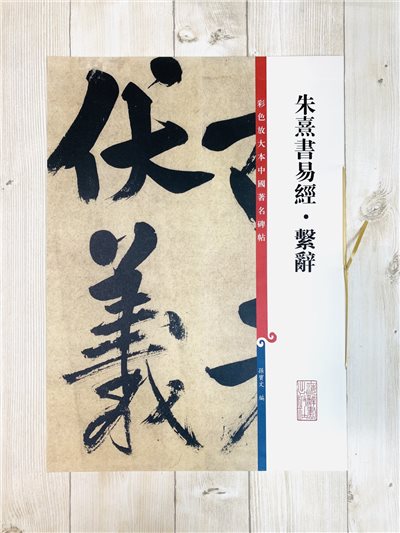 朱熹書易經·繫辭
彩色放大本中國著名碑帖
孫寶文 編
伏羲